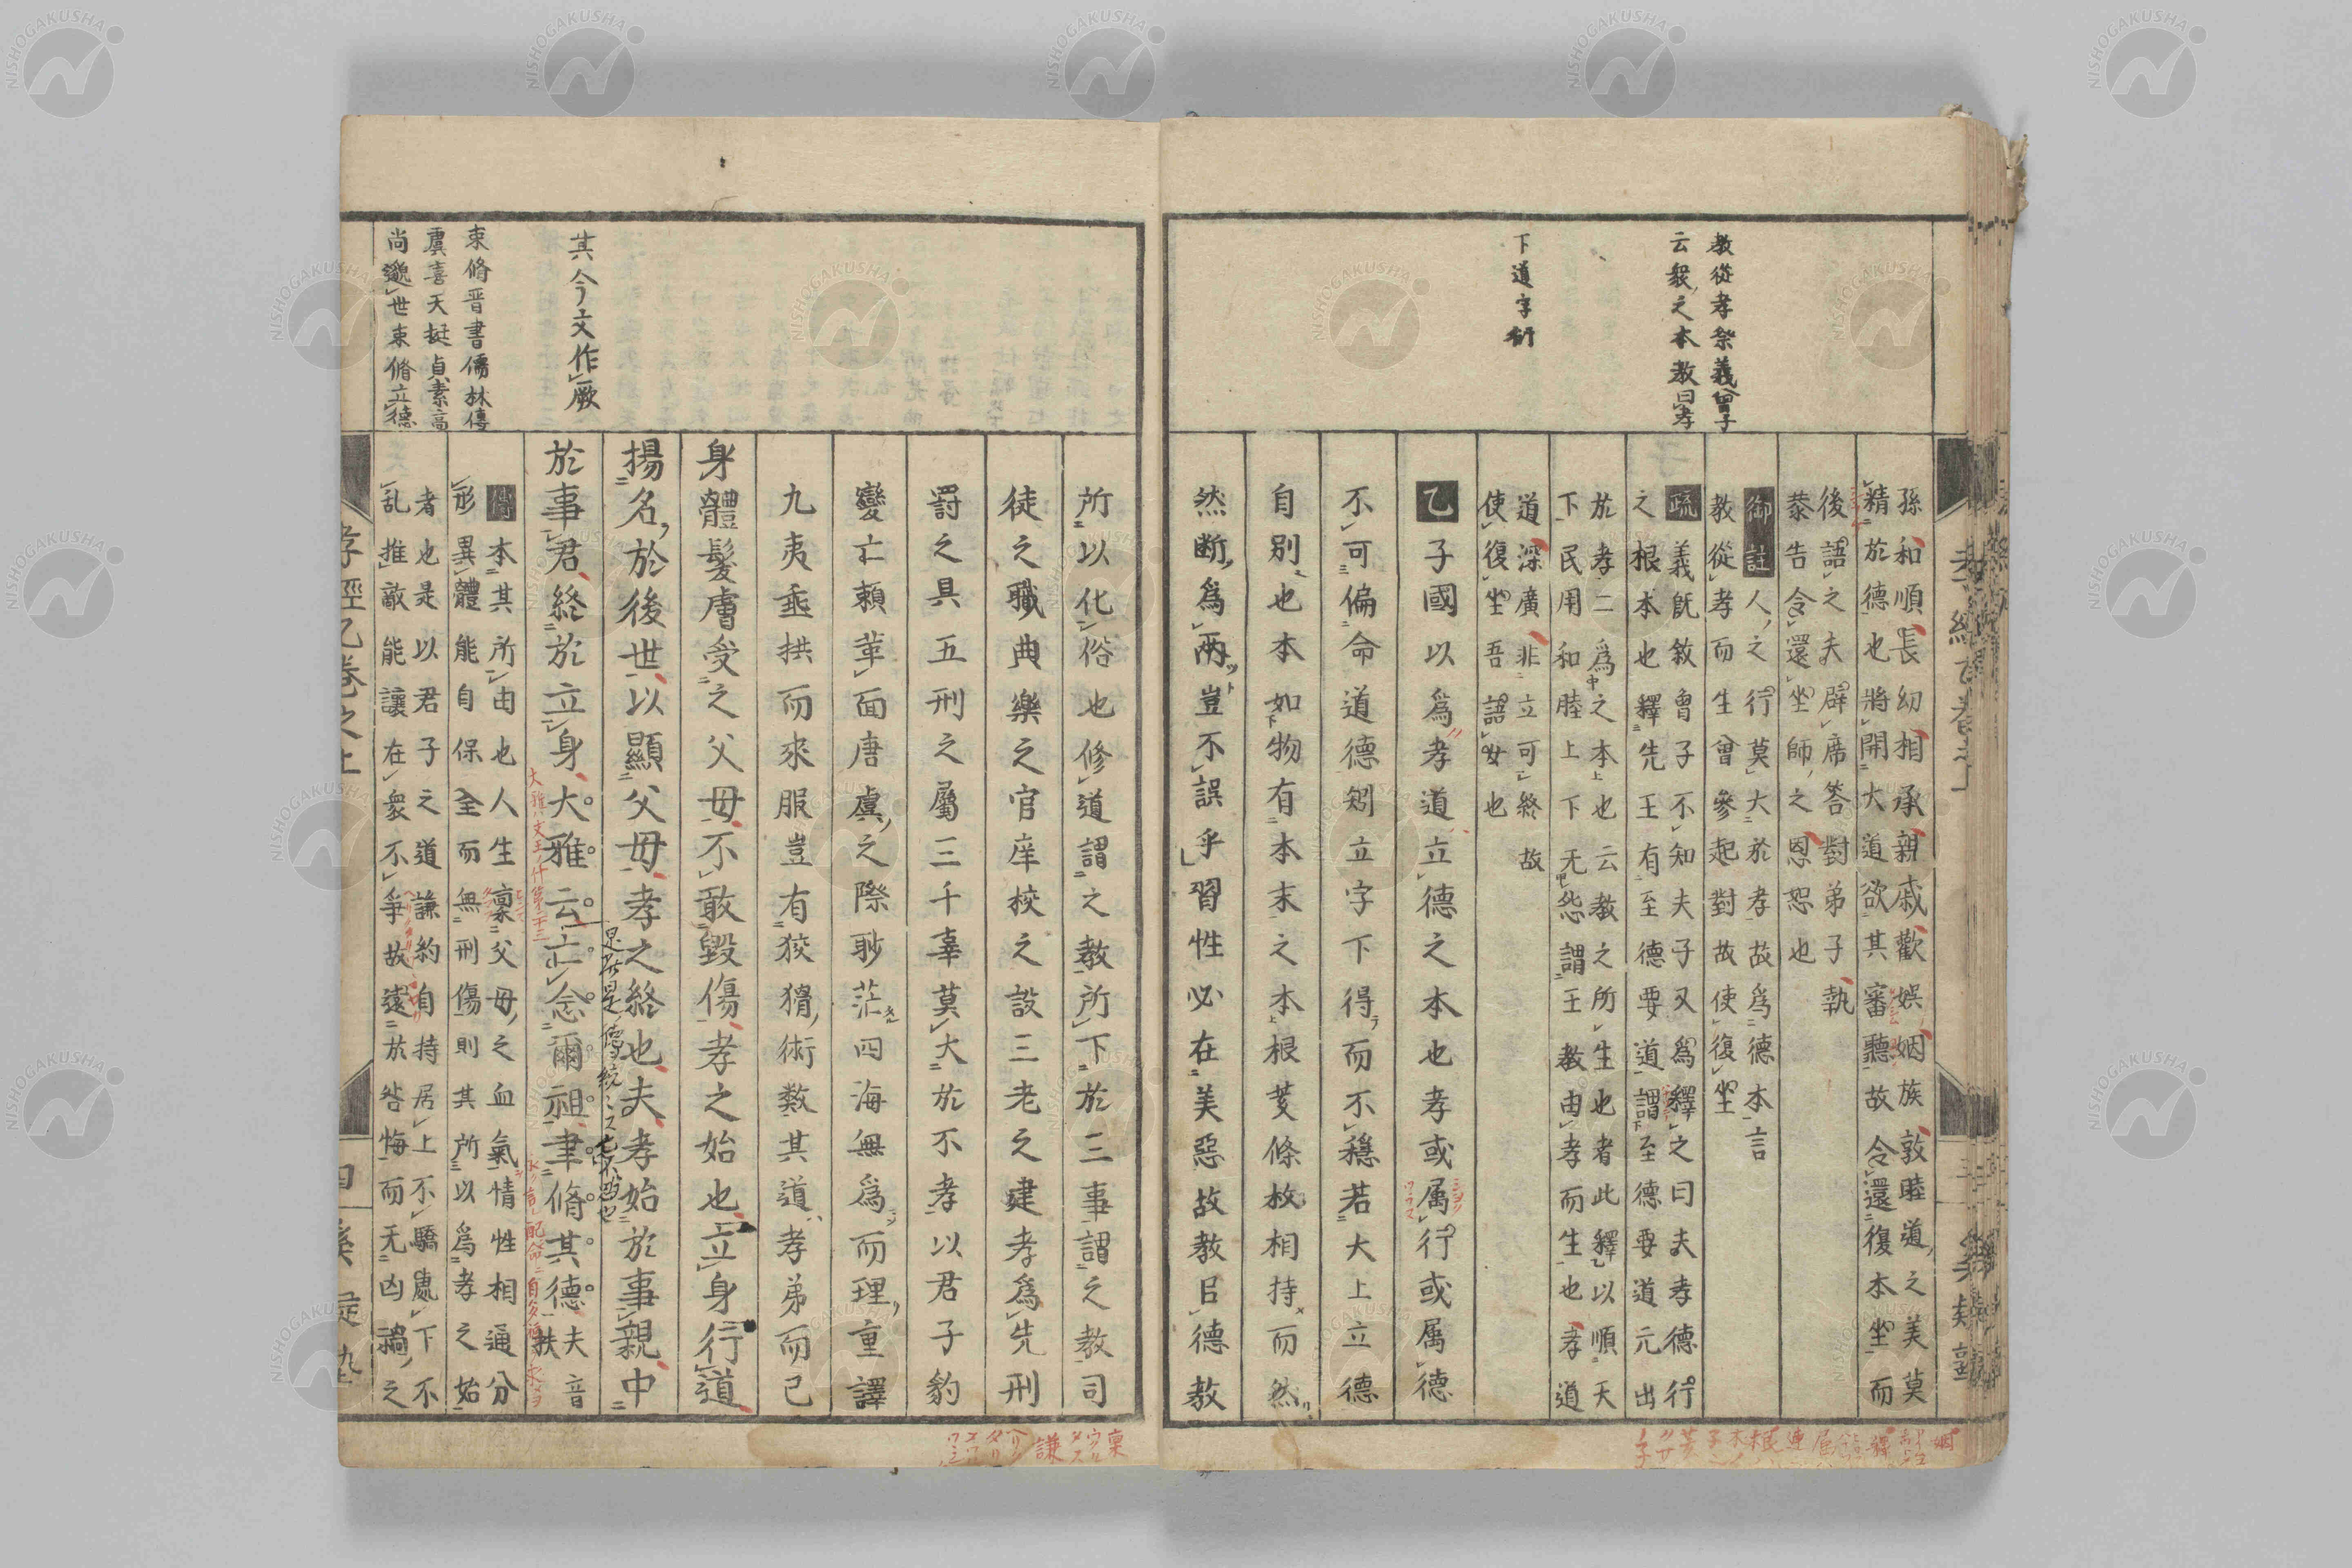 教從孝祭義曾子
云衆之本教曰孝
下道字衍
孫和順長幼相承親戚歡娯姻族敦睦道之美莫
精於德也將開大道欲其審聽故令還復本坐而
後語之夫辟席答對弟子執
恭告令還坐師之恩恕也
御註人之行莫大於孝故爲德本言
教從孝而生曾參起對故使復坐
疏義既敘曾子不知夫子又爲釋之曰夫孝德行
之根本也釋先王有至德要道謂至德要道元出
於孝二爲之本也云教之所生也者此釋以順天
下民用和睦上下无怨謂王教由孝而生也孝道
道深廣非立可終故
使復坐吾語女也
乙子國以爲孝道立德之本也孝或属行或属德
不可偏命道德矧立字下得而不穩若大上立德
自別也本如物有本末之本根荄條枚相持而然
然断爲兩豈不誤乎習性必在美惡故教㠯德教
其今文作厥
束脩晋書儒林傳
虞喜天挺貞素高
尚邈世束脩立德
所以化俗也修道謂之教所下於三事謂之教司
徒之職典樂之官庠校之設三老之建孝爲先刑
罰之具五刑之屬三千辜莫大於不孝以君子豹
變亡頼革面唐虞之際眇茫四海無爲而理重譯
九夷垂拱而來服豈有狡猾術数其道孝弟而已
身體髮膚受之父母不敢毀傷孝之始也立身行道
揚名於後世以顯父母孝之終也夫孝始於事親中
於事君終於立身大雅云亡念爾祖聿脩其德夫音扶
傳本其所由也人生稟父母之血氣情性相通分
形異體能自保全而無刑傷則其所以爲孝之始
者也是以君子之道謙約自持居上不驕處下不
乱推敵能讓在衆不爭故遠於咎悔而无凶禍之
孝經乙卷之上
四
NISHOGAKUSHA